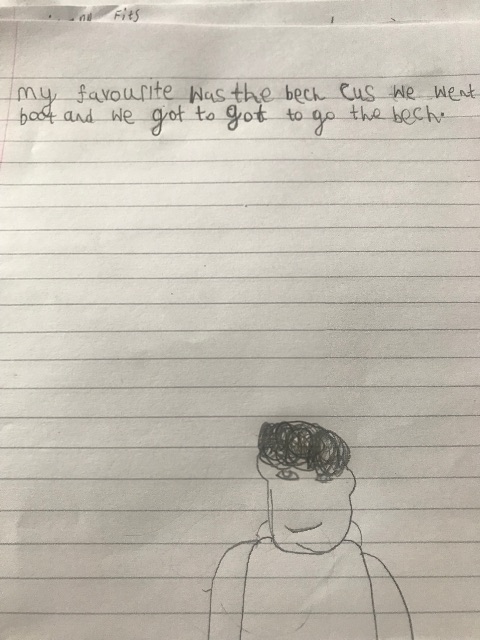 Fits
my favourite was the bech cus we went
boat and we got to got to go the bech.